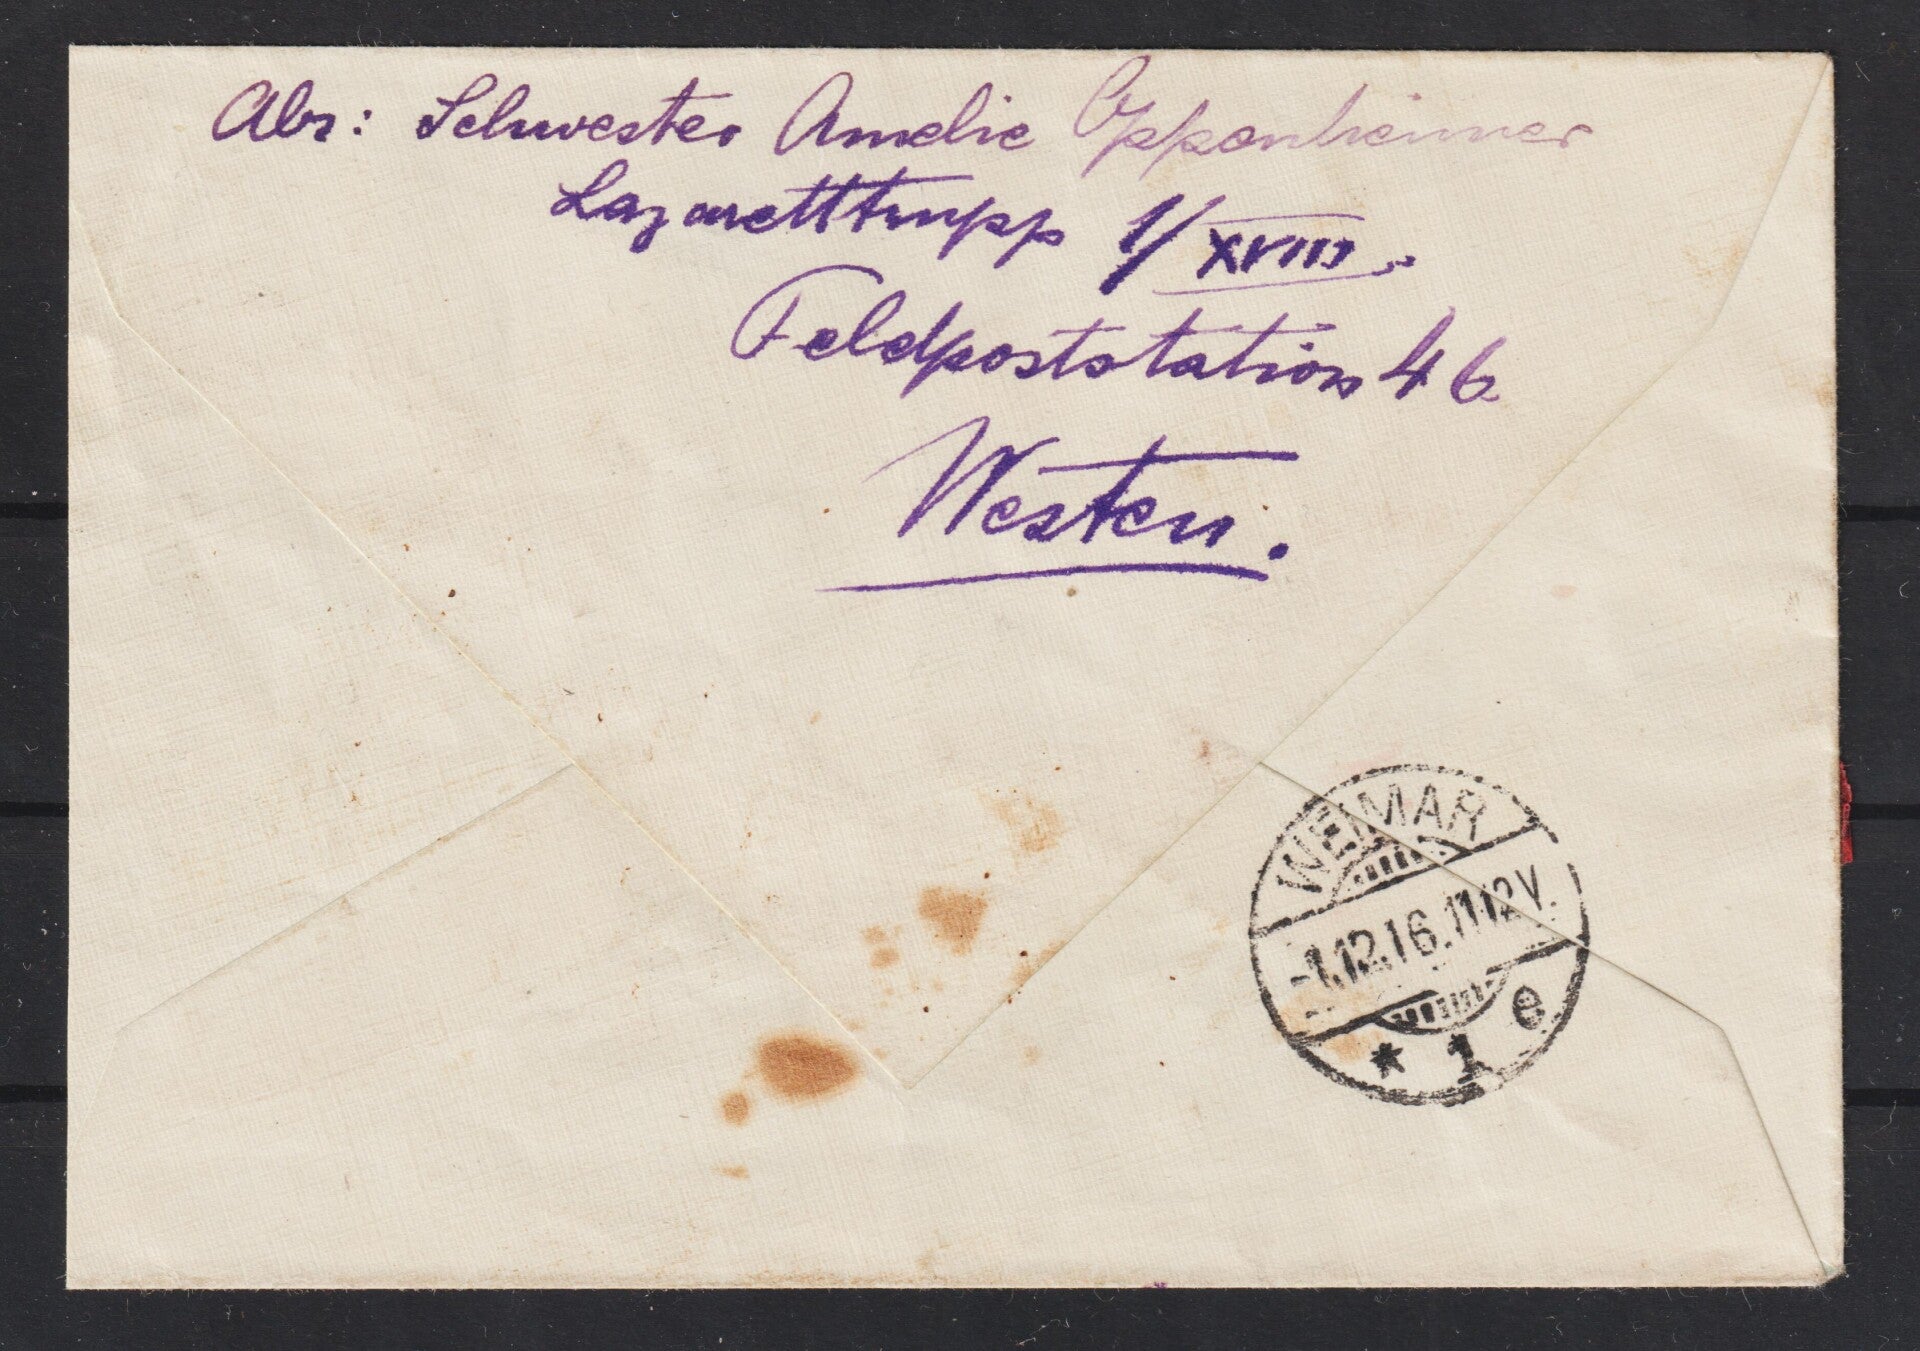 Abs: Schwester Amelie Oppenheimer
Lazaretttrupp 1/XVIII.
Feldpoststation 46
Westen.
WEIMAR
-1.12.16.11-12V.
* 1 e